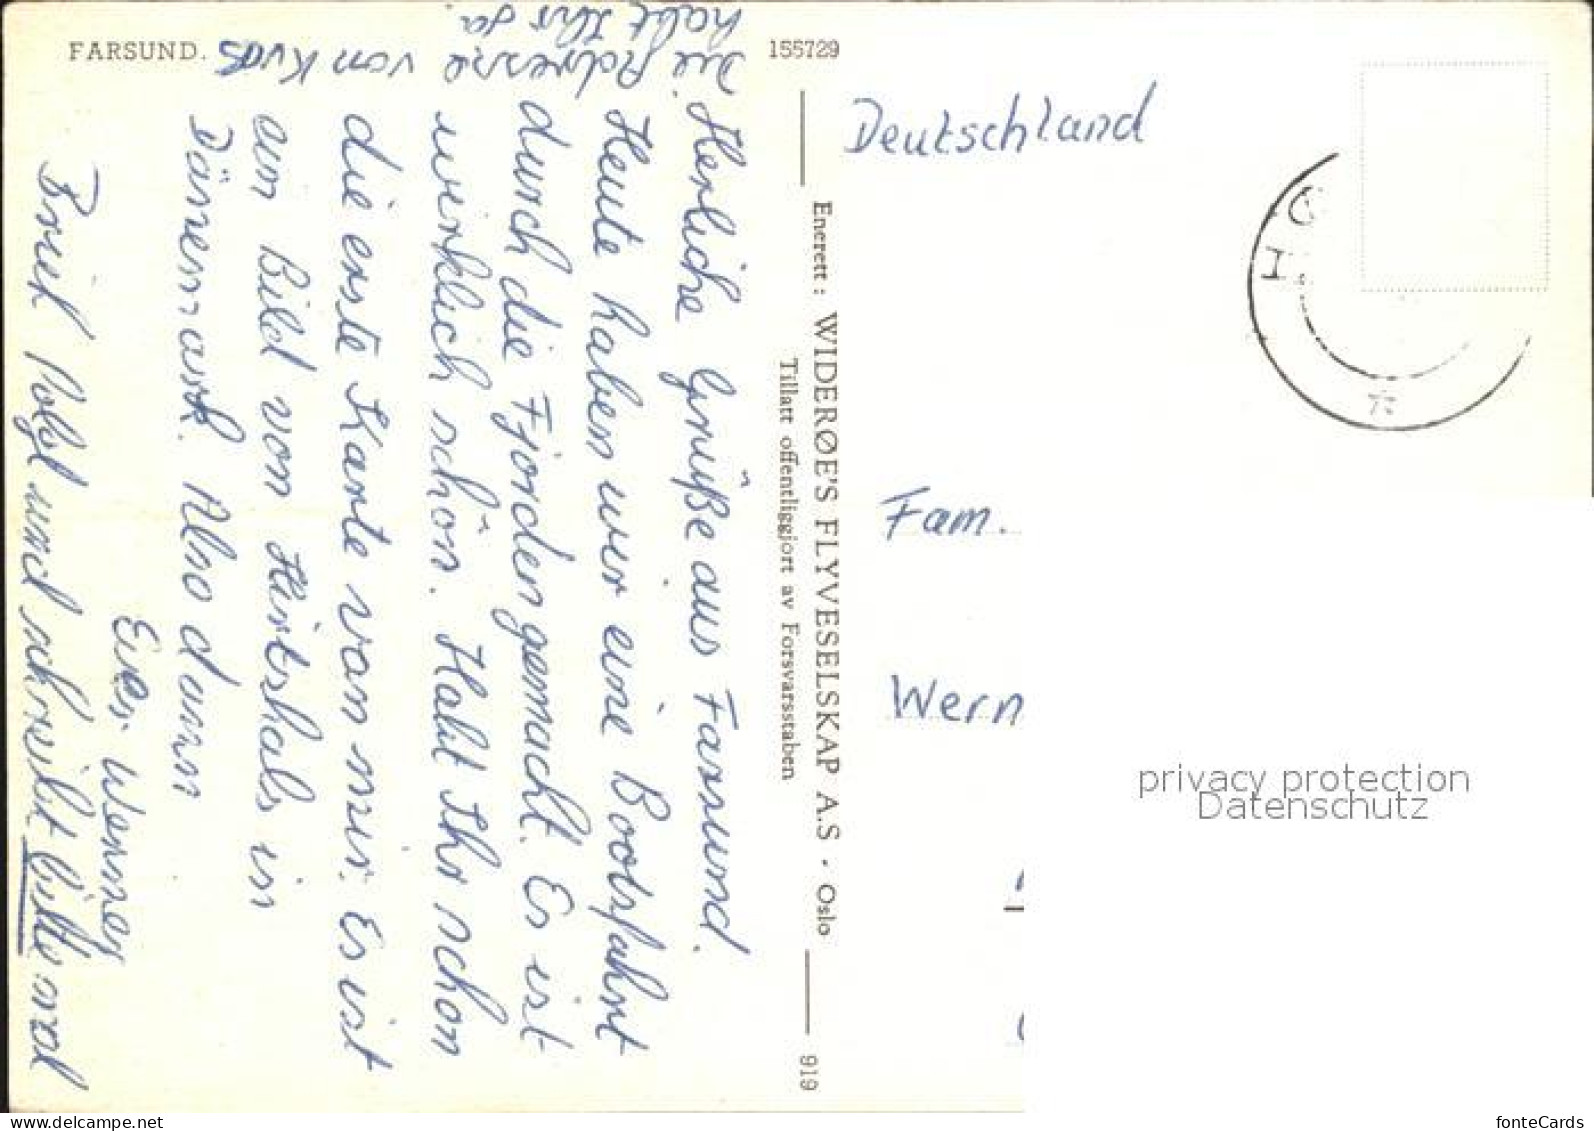 FARSUND.
155729
Herliche Grüße aus Farsund.
Heute haben wir eine Bootsfahrt
durch die Fjorden gemacht. Es ist
wirklich schön. Habt Ihr schon
die erste Karte von mir. Es ist
ein Bild von Hirtshals in
Dänemark. Also dann
Euer Werner
Brief folgt und schreibt bitte mal
Die Adresse von Kvas
habt Ihr ja.
Enerett: WIDERØE'S FLYVESELSKAP A.S · Oslo
Tillatt offentliggjort av Forsvarsstaben
919
Deutschland
Fam.
Wern
privacy protection
Datenschutz
www.delcampe.net
fonteCards